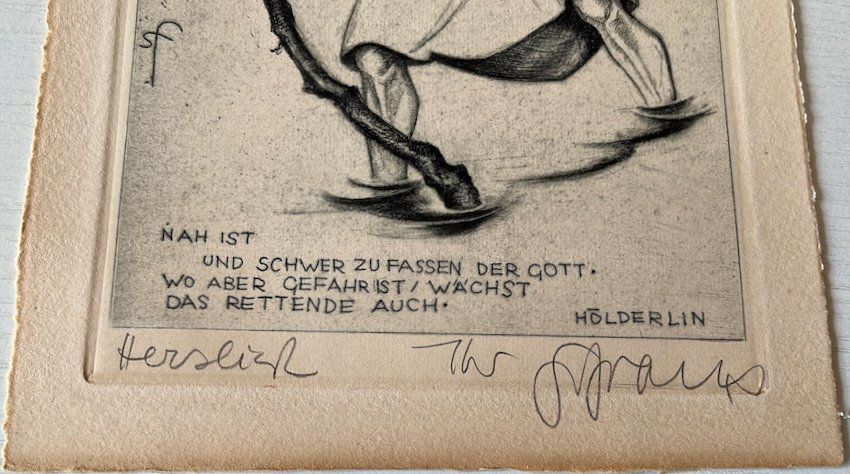 NAH IST
UND SCHWER ZU FASSEN DER GOTT.
WO ABER GEFAHR IST / WÄCHST
DAS RETTENDE AUCH.
HÖLDERLIN
Herzlich Ihr